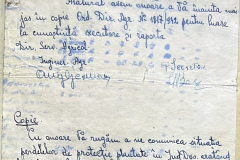 Alăturat avem onoare a Vă înainta mai
jos în copie Ord. Dir. Agr. Nº 4867/942 pentru luare
la cunoștință executare și raporta
Dir. Serv. Agricol
Inginer Agr.
Copie
Cu onoare Vă rugăm a ne comunica situația
perdelelor de protecție plantate în Jud. Dvs. arătând